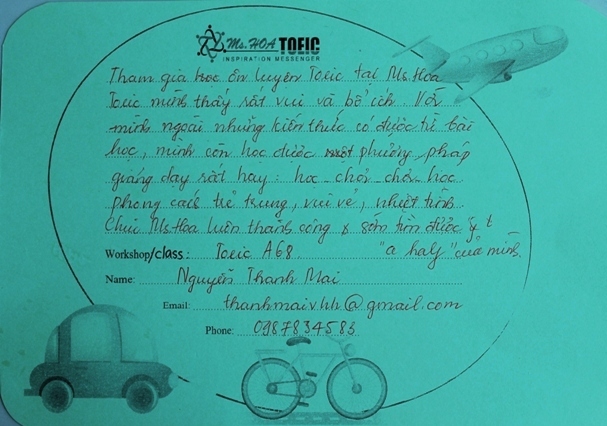 Ms. HOA TOEIC
INSPIRATION MESSENGER
Tham gia học ôn luyện Toeic tại Ms. Hoa
Toeic mình thấy rất vui và bổ ích. Với
mình ngoài những kiến thức có được từ bài
học, mình còn học được một phương pháp
giảng dạy rất hay: học chơi chơi học
phong cách trẻ trung, vui vẻ, nhiệt tình.
Chúc Ms. Hoa luôn thành công & sớm tìm được
"a half" của mình.
Workshop/class: Toeic A68.
Name: Nguyễn Thanh Mai
Email: thanhmaivhh@gmail.com
Phone: 0987834583